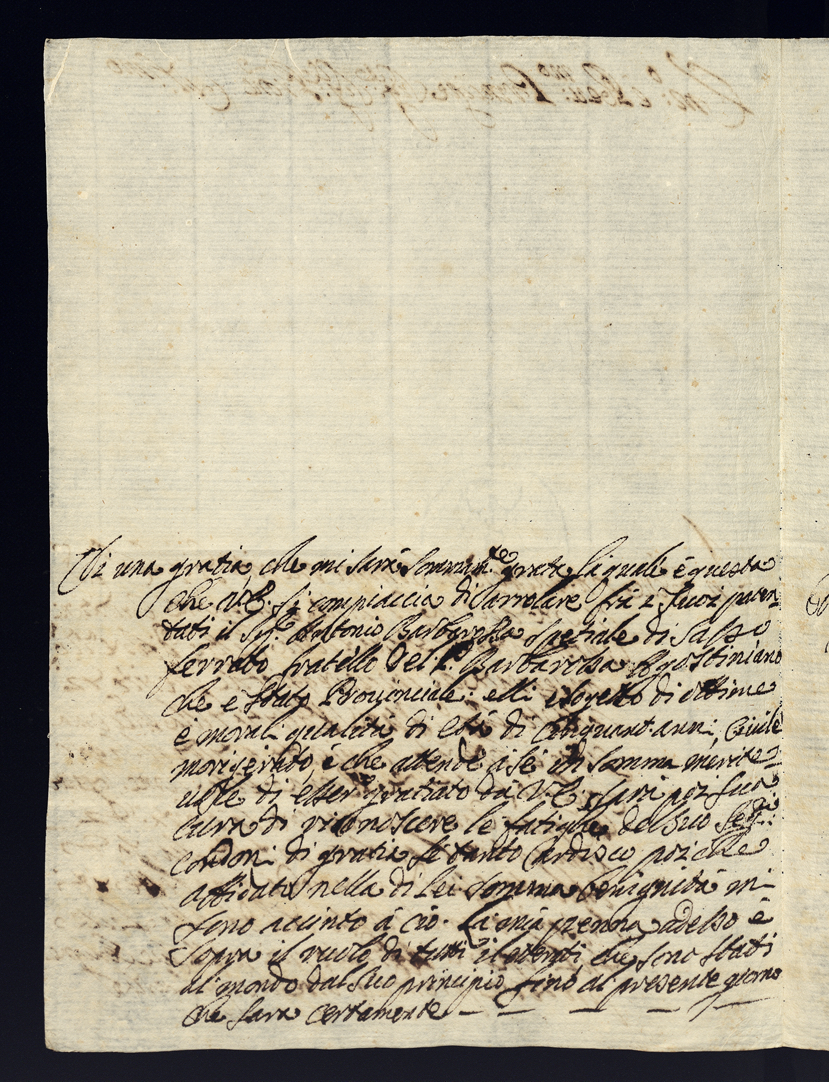 Di una gratia, che mi sarà sommam.te grata, la quale è questa
che V.E. si compiaccia di arrolare frà i suoi paten
tati il Sig.r Antonio Barbarossa spetiale di Sasso
ferrato fratello del P. Barbarossa Agostiniano
che è stato Provinciale: egli è soggetto di ottime
e morali qualità di età di Cinquant'anni, Civile
morigerato, e che attende à sè in somma merite=
uole di esser gratiato da V.E. sarà poi sua
cura di riconoscere le fatighe del suo Seg.:
condoni di gratia se tanto ardisco poiche
affidato nella di lei somma benignità mi
sono accinto à ciò. La mia penna adesso è
sopra il ruolo di tutti i che sono stati
al mondo dal suo principio fino al presente giorno
che sarà certamente